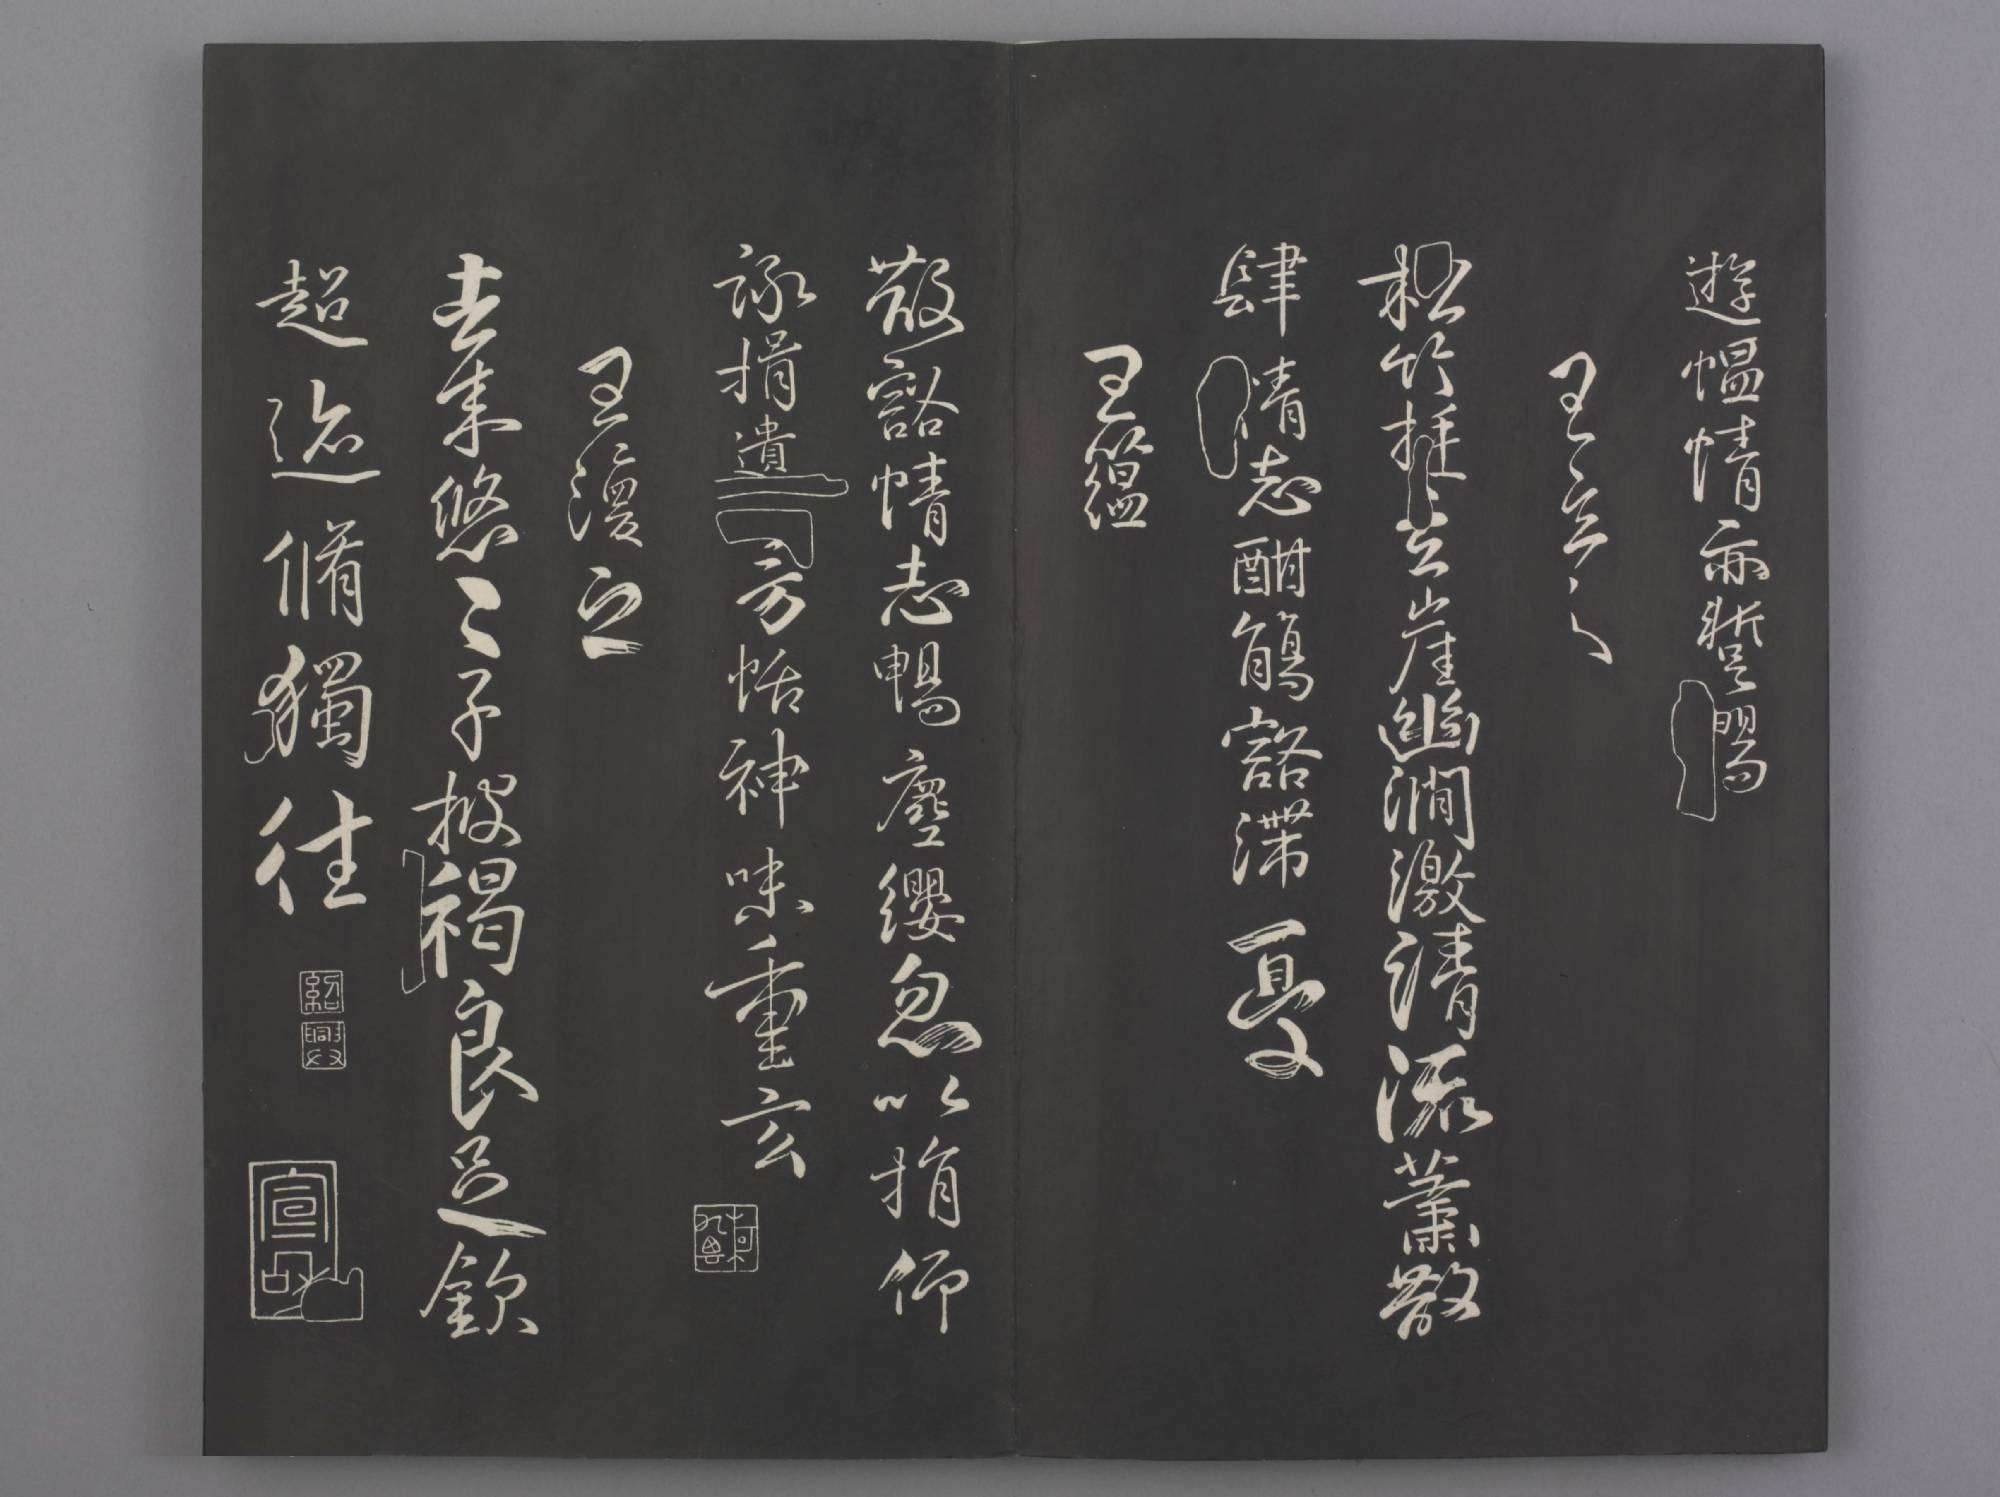 遊慍情亦蹔暢
王玄之
松竹挺崖幽澗激清流蕭散
肆情志酣觴豁滯憂
王蘊
散豁情志暢塵纓忽以捐仰
詠遺芳恬神味重玄
王渙之
去來悠〻子披褐良足欽
超迹脩獨往
紹興
宣和